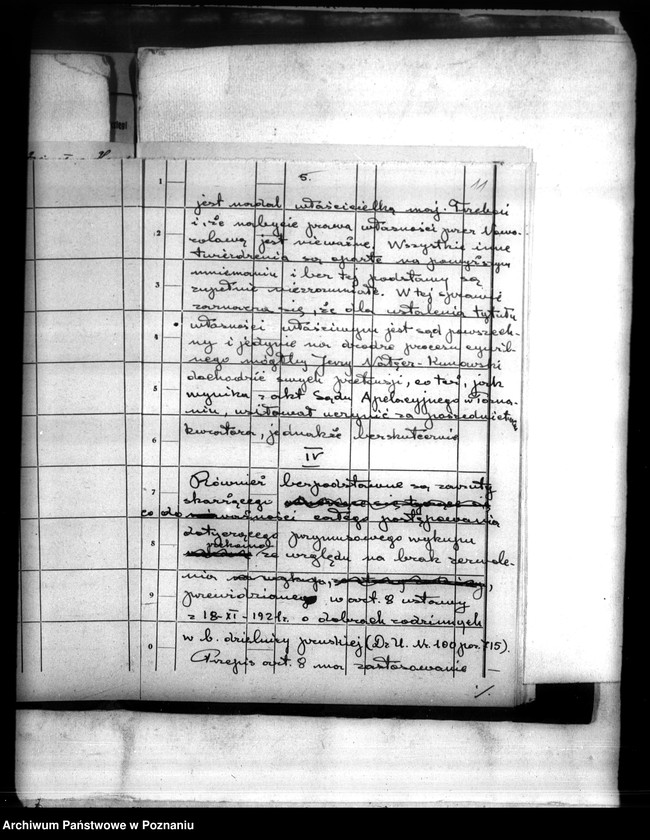 5.
11
jest nadal właścicielką maj.
i, że nabycie prawa własności przez Nowo-
rolową jest nieważne. Wszystkie inne
twierdzenia są oparte na powyższym
mniemaniu i bez tej podstawy są
zupełnie niezrozumiałe. W tej sprawie
zaznacza się, że dla ustalenia tytułu
własności właściwym jest sąd powszech-
ny i jedynie na drodze procesu cywil-
nego mógłby Jerzy Kunowski
dochodzić swych pretensji, co też, jak
wynika z akt Sądu Apelacyjnego w Pozna-
niu, usiłował uczynić za pośrednictwem
kuratora, jednakże bezskutecznie
IV
Również bezpodstawne są zarzuty
skarżącego
co do nieważności całego postępowania
dotyczącego przymusowego wykupu
ze względu na brak zezwole-
nia
przewidzianego w art. 8 ustawy
z 18-XI-1921r. o dobrach rodzinnych
w b. dzielnicy pruskiej (Dz. U. Nr. 100 poz. 715).
Przepis art. 8 ma zastosowanie
./.
1
2
3
4
5
6
7
8
9
0
Archiwum Państwowe w Poznaniu